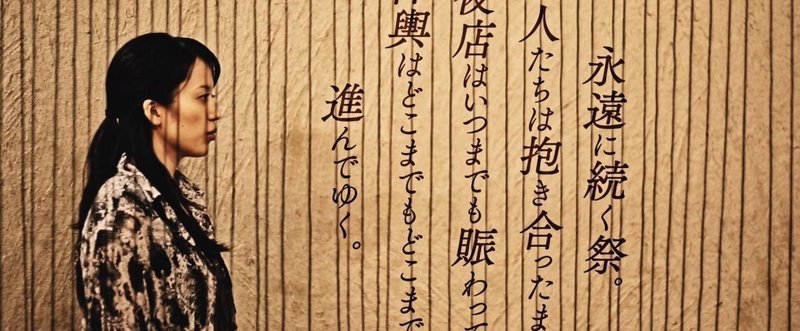 永遠に続く祭。
人たちは抱き合ったま
夜店はいつまでも賑わって
神輿はどこまでもどこまで
進んでゆく。